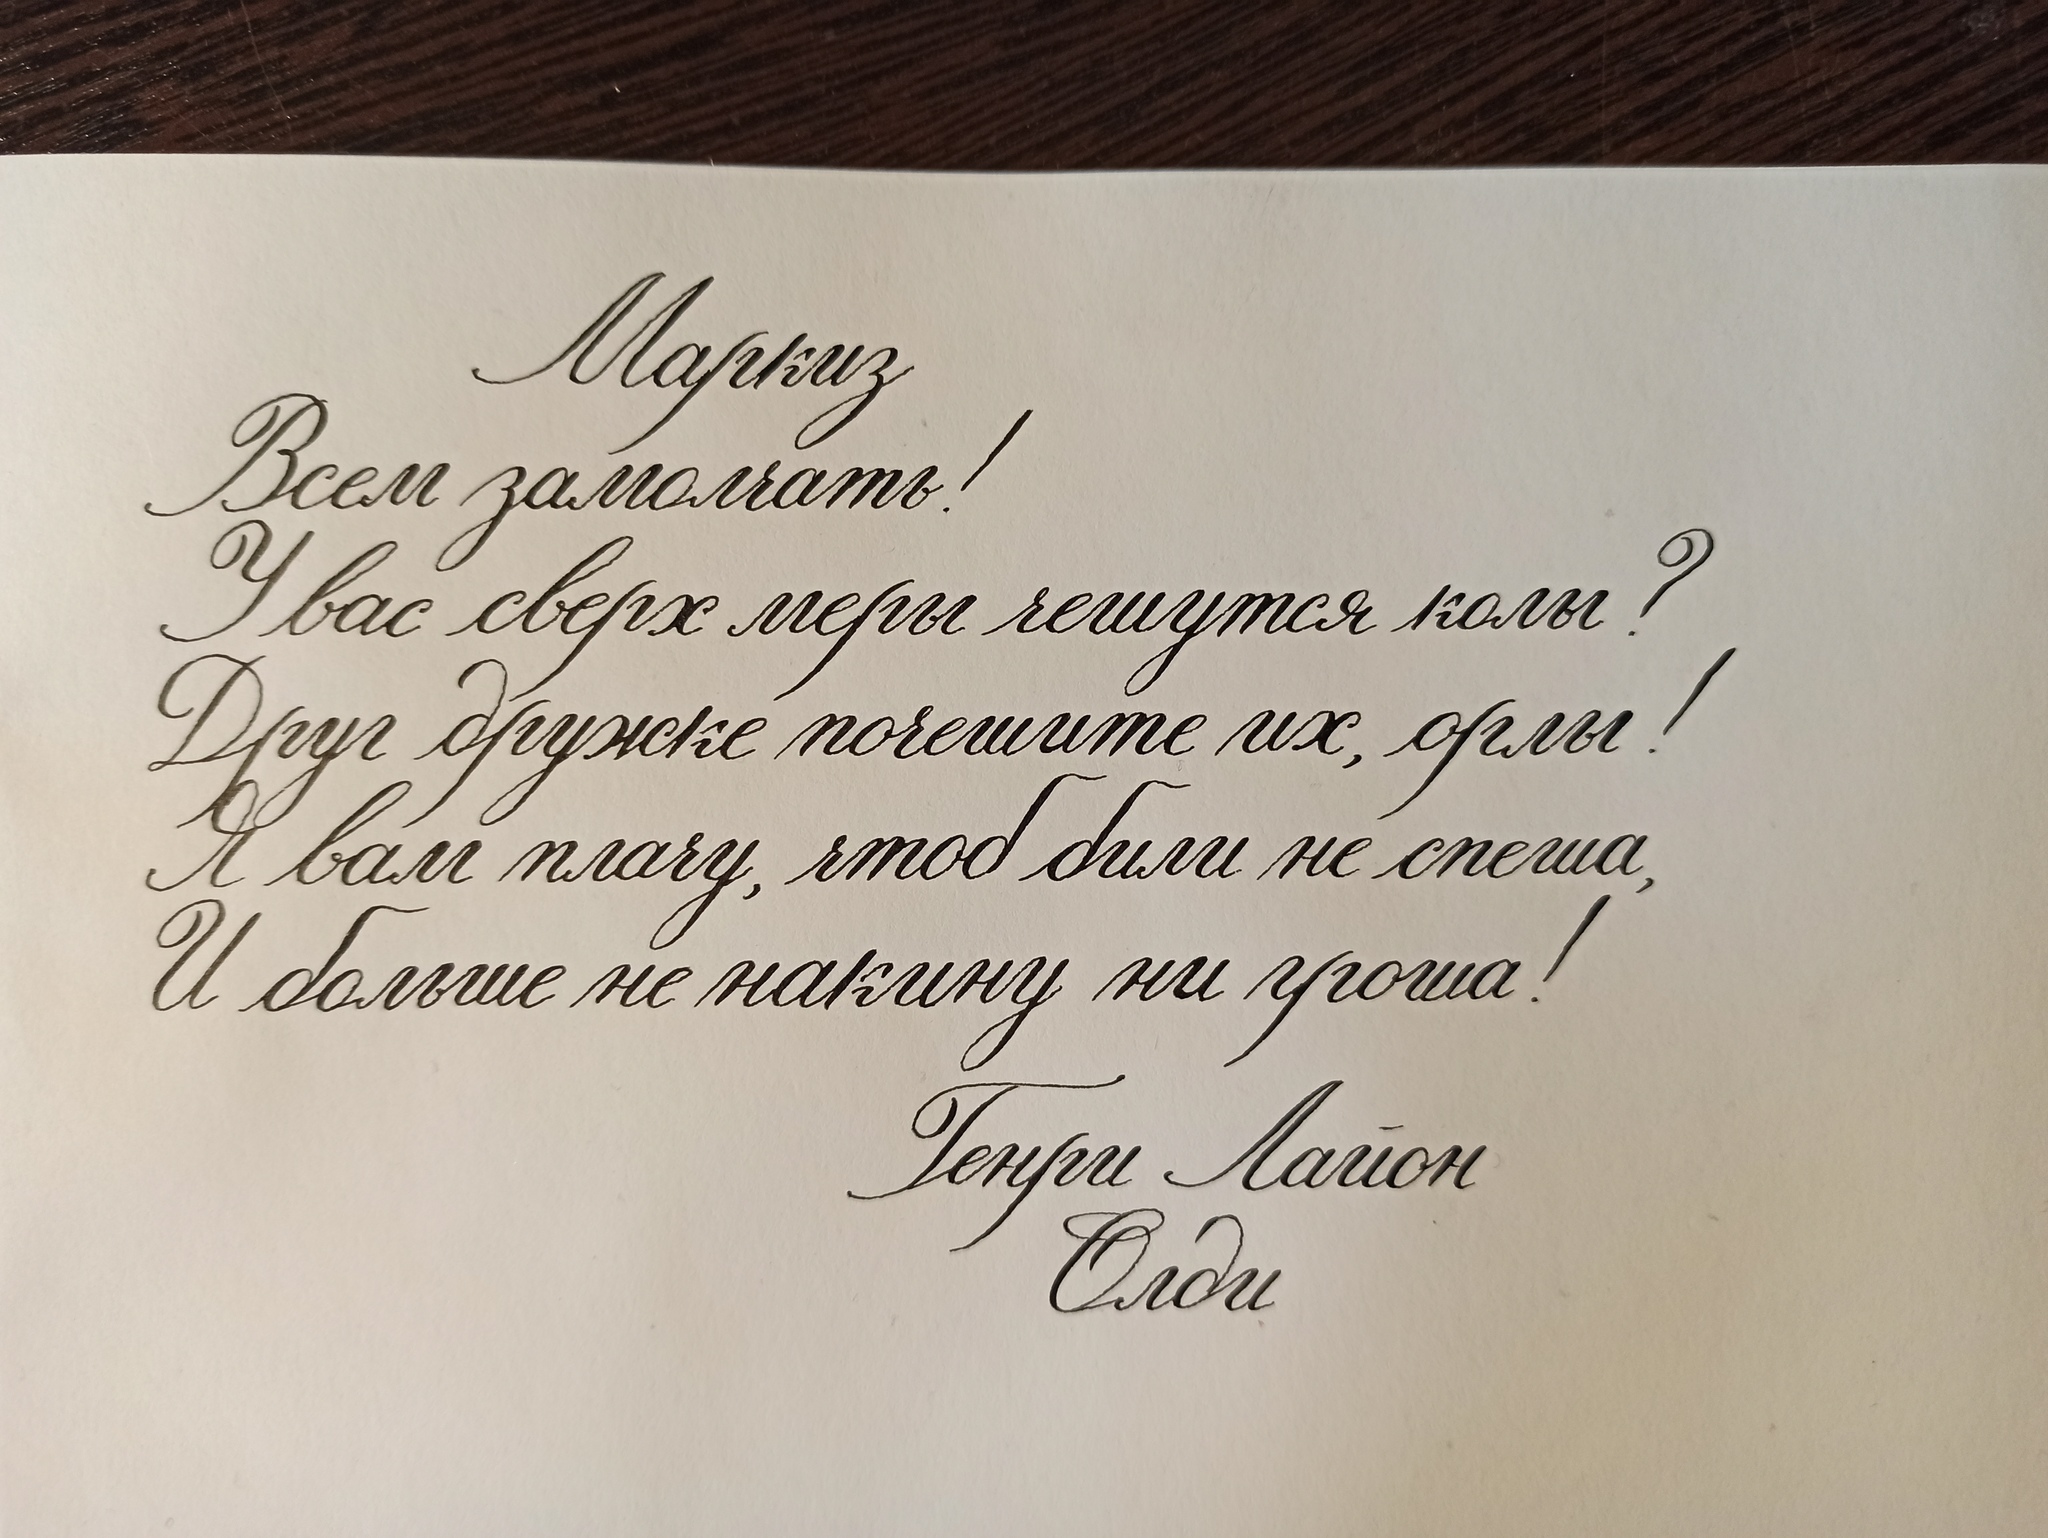 Маркиз
Всем замолчать!
У вас сверх меры чешутся колы?
Друг дружке почешите их, орлы!
Я вам плачу, чтоб били не спеша,
И больше не накину ни гроша!
Генри Лайон
Олди